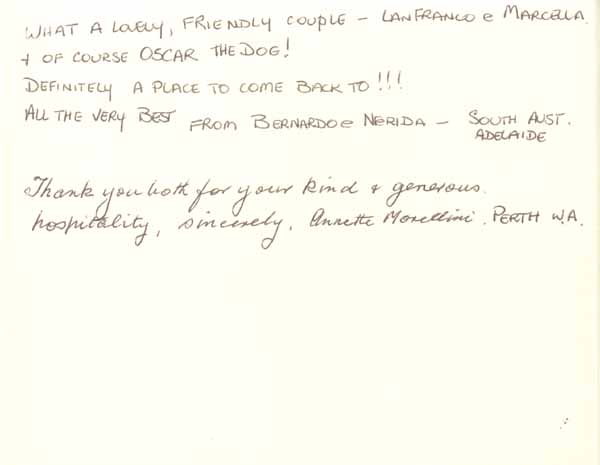 WHAT A LOVELY, FRIENDLY COUPLE - LANFRANCO e MARCELLA.
+ OF COURSE OSCAR THE DOG!
DEFINITELY A PLACE TO COME BACK TO !!!
ALL THE VERY BEST FROM BERNARDO e NERIDA - SOUTH AUST.
ADELAIDE
Thank you both for your kind & generous
hospitality, sincerely, Annette Morellini. PERTH W.A.